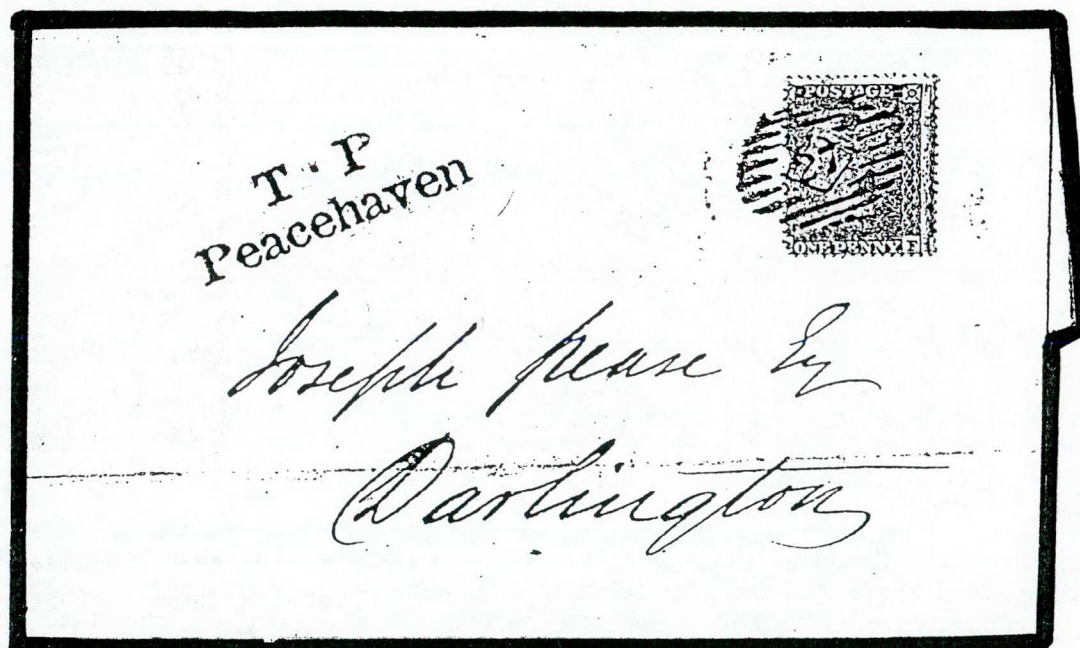 T · P
Peacehaven
POSTAGE
ONE PENNY F
Joseph Pease Esq
Darlington